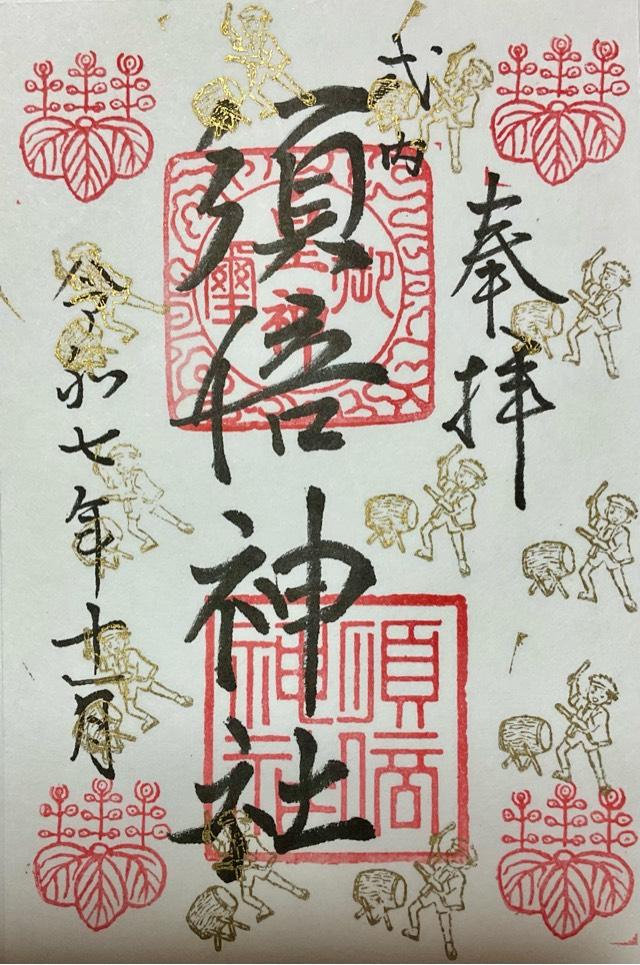 式内
奉拝
須倍神社
令和七年十一月
須倍神社